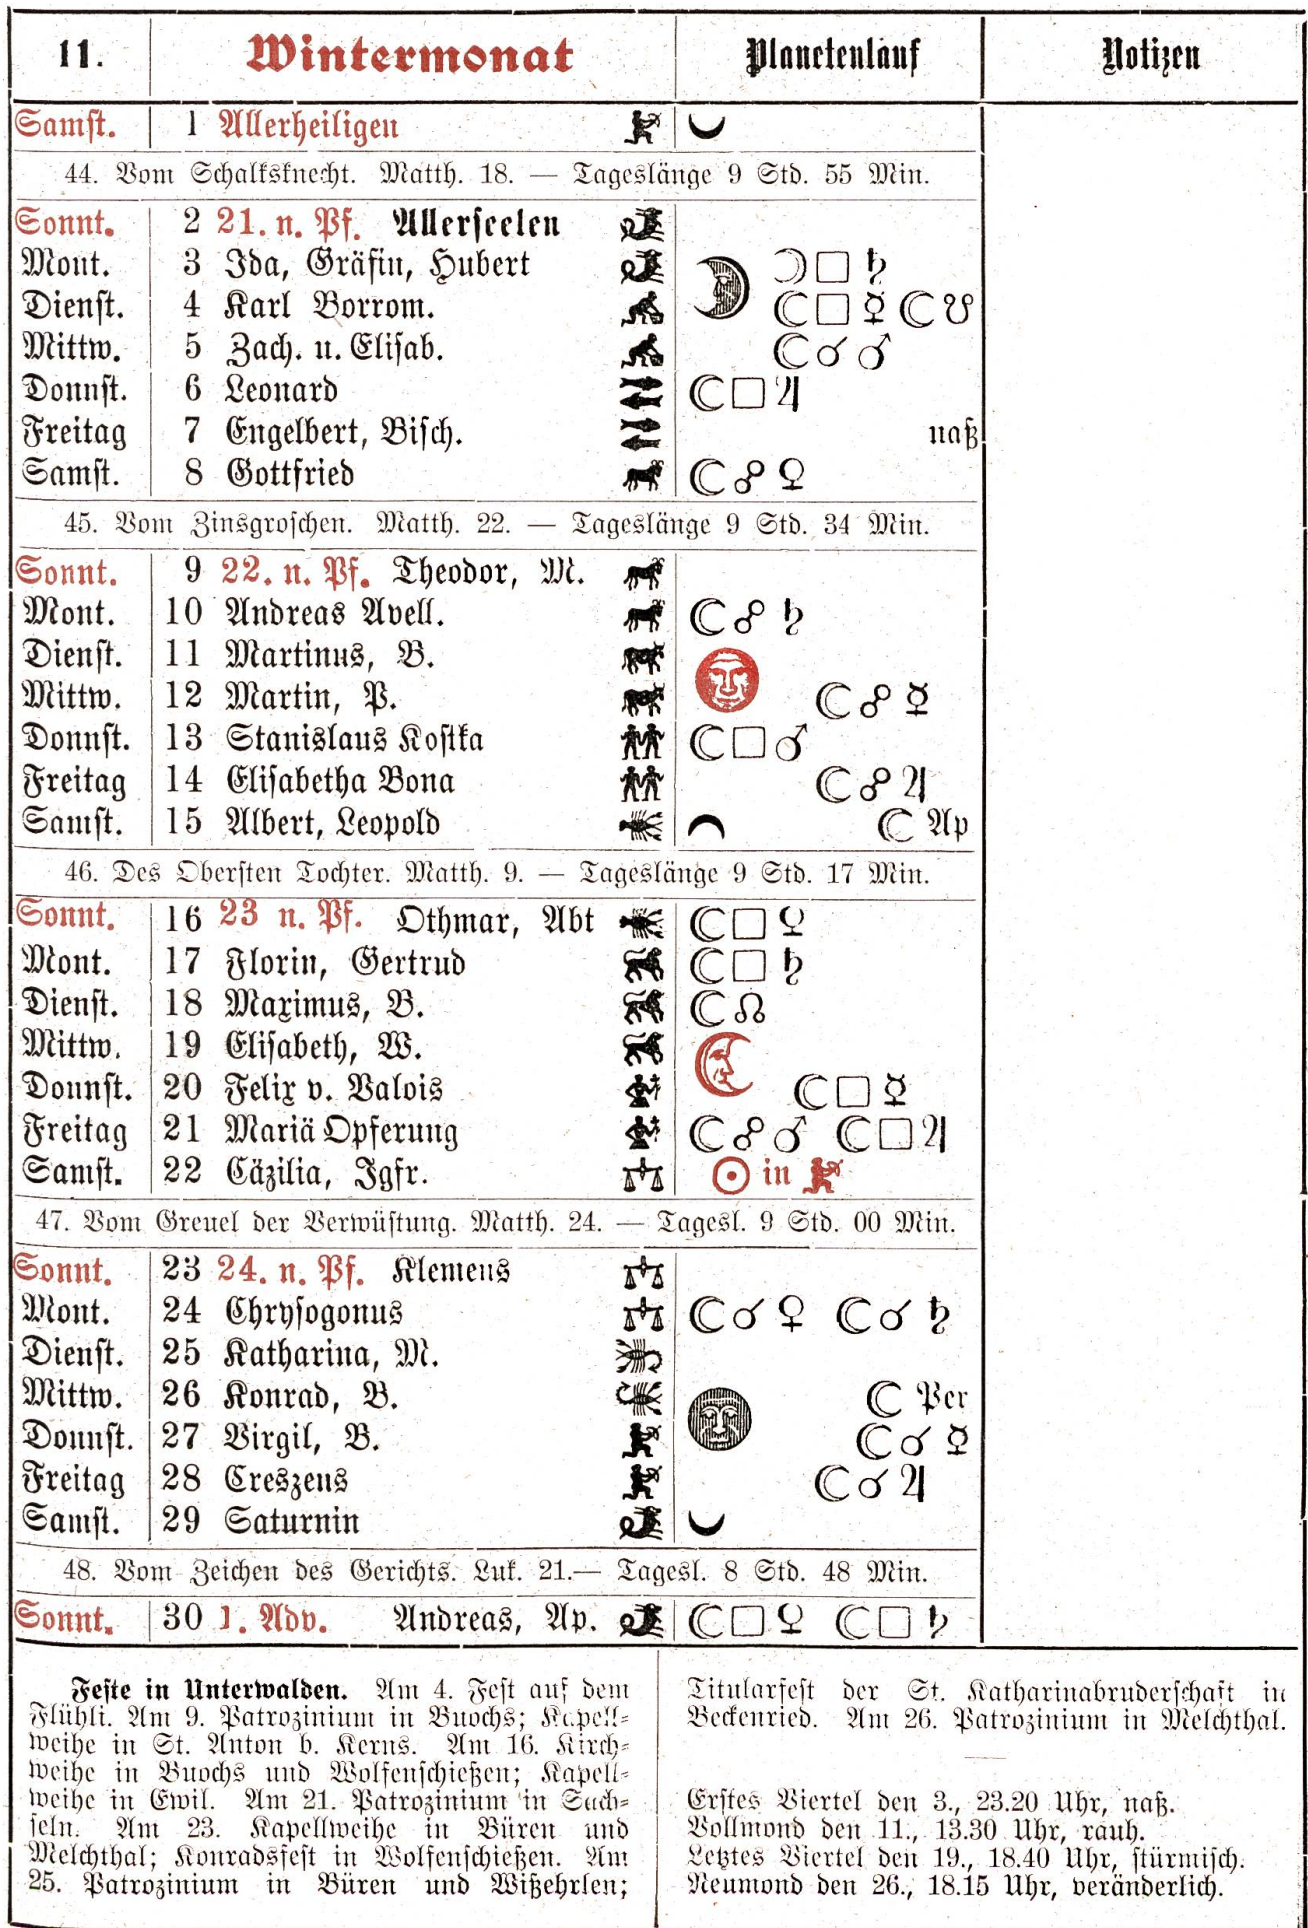 11. Wintermonat Planetenlauf Notizen
Samst. 1 Allerheiligen
44. Vom Schalksknecht. Matth. 18. — Tageslänge 9 Std. 55 Min.
Sonnt. 2 21. n. Pf. Allerseelen
Mont. 3 Ida, Gräfin, Hubert ☽ □ ♄
Dienst. 4 Karl Borrom. ☾ □ ☿ ☾ ☋
Mittw. 5 Zach. u. Elisab. ☾ ☌ ♂
Donnst. 6 Leonard ☾ □ ♃
Freitag 7 Engelbert, Bisch. naß
Samst. 8 Gottfried ☾ ☍ ♀
45. Vom Zinsgroschen. Matth. 22. — Tageslänge 9 Std. 34 Min.
Sonnt. 9 22. n. Pf. Theodor, M.
Mont. 10 Andreas Avell. ☾ ☍ ♄
Dienst. 11 Martinus, B.
Mittw. 12 Martin, P. ☾ ☍ ☿
Donnst. 13 Stanislaus Kostka ☾ □ ♂
Freitag 14 Elisabetha Bona ☾ ☍ ♃
Samst. 15 Albert, Leopold ☾ Ap
46. Des Obersten Tochter. Matth. 9. — Tageslänge 9 Std. 17 Min.
Sonnt. 16 23 n. Pf. Othmar, Abt ☾ □ ♀
Mont. 17 Florin, Gertrud ☾ □ ♄
Dienst. 18 Maximus, B. ☾ ☊
Mittw. 19 Elisabeth, W.
Donnst. 20 Felix v. Valois ☾ □ ☿
Freitag 21 Mariä Opferung ☾ ☍ ♂ ☾ □ ♃
Samst. 22 Cäzilia, Igfr. ☉ in
47. Vom Greuel der Verwüstung. Matth. 24. — Tagesl. 9 Std. 00 Min.
Sonnt. 23 24. n. Pf. Klemens
Mont. 24 Chrysogonus ☾ ☌ ♀ ☾ ☌ ♄
Dienst. 25 Katharina, M.
Mittw. 26 Konrad, B. ☾ Per
Donnst. 27 Virgil, B. ☾ ☌ ☿
Freitag 28 Creszens ☾ ☌ ♃
Samst. 29 Saturnin
48. Vom Zeichen des Gerichts. Luk. 21.— Tagesl. 8 Std. 48 Min.
Sonnt. 30 1. Adv. Andreas, Ap. ☾ □ ♀ ☾ □ ♄
Feste in Unterwalden. Am 4. Fest auf dem
Flühli. Am 9. Patrozinium in Buochs; Kapell-
weihe in St. Anton b. Kerns. Am 16. Kirch-
weihe in Buochs und Wolfenschießen; Kapell-
weihe in Ewil. Am 21. Patrozinium in Sach-
seln. Am 23. Kapellweihe in Büren und
Melchthal; Konradsfest in Wolfenschießen. Am
25. Patrozinium in Büren und Wißehrlen;
Titularfest der St. Katharinabruderschaft in
Beckenried. Am 26. Patrozinium in Melchthal.
Erstes Viertel den 3., 23.20 Uhr, naß.
Vollmond den 11., 13.30 Uhr, rauh.
Letztes Viertel den 19., 18.40 Uhr, stürmisch.
Neumond den 26., 18.15 Uhr, veränderlich.